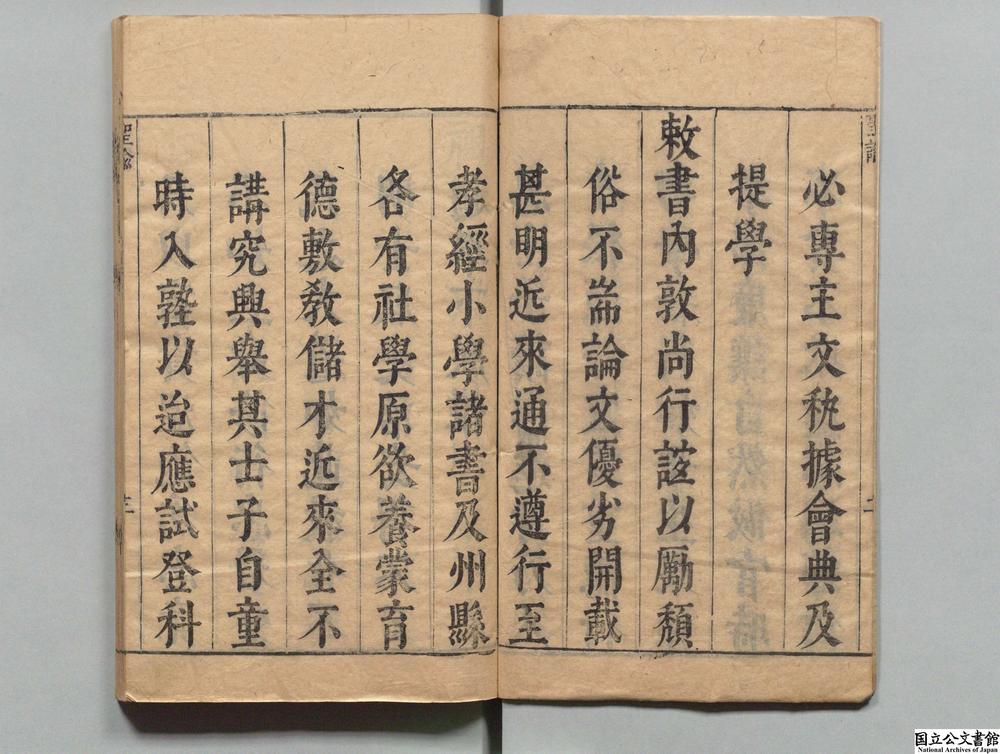 必專主文秇據會典及
提學
敕書內敦尚行誼以勵頹
俗不耑論文優劣開載
甚明近來通不遵行至
孝經小學諸書及州縣
各有社學原欲養蒙育
德敷教儲才近來全不
講究興舉其士子自童
時入塾以迨應試登科
聖諭
二
聖諭
三
国立公文書館
National Archives of Japan